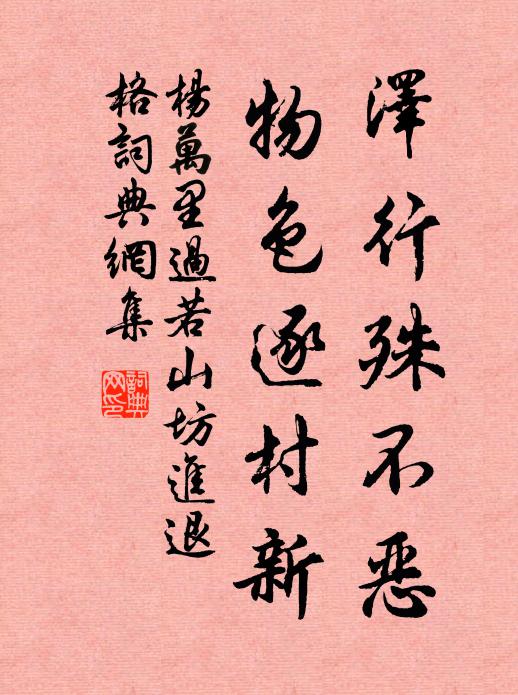 澤行殊不惡
物色逐村新
楊萬里過若山坊進退
格詞典網集
詞典網印